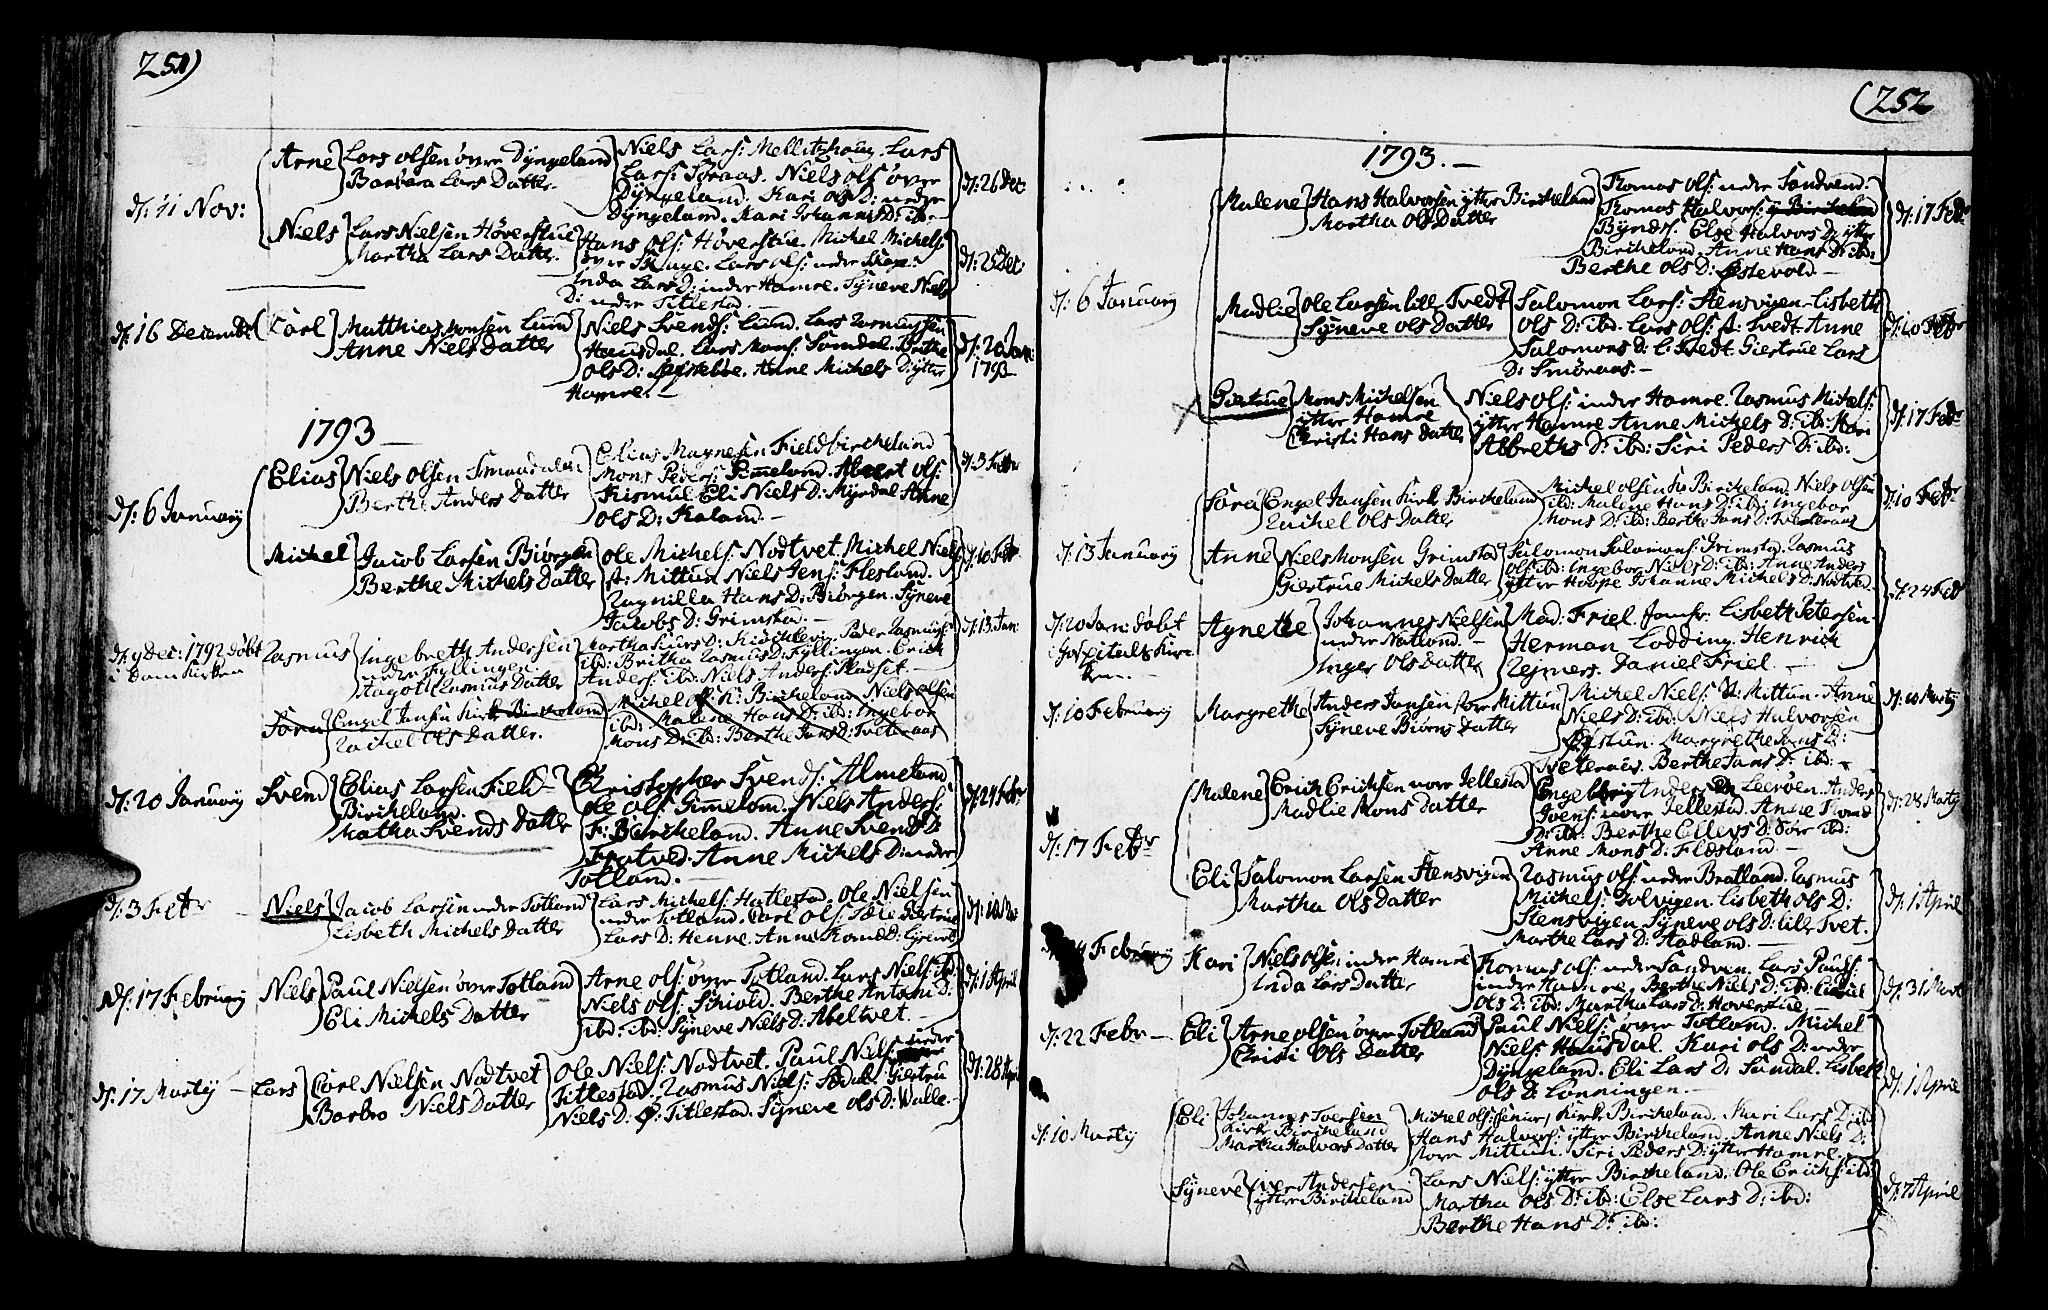 251)
d: 11 Nov:
Arne
Lars Olsen øvre Dÿngeland
Barbara Lars Datter
Niels Lars: Mellitzhoug. Lars
Lars: Søraas. Niels Ols: øvre
Dÿngeland. Kari Ols D: nedre
Dÿngeland. Kari Johannis D: ibr
d: 26 Dec:
Niels
Lars Nielsen Høverstue
Martha Lars Datter.
Hans Ols: Høverstue. Michel Michels:
øvre Skage. Lars Ols: nedre Skage:
Inda Lars D: indre Hamre. Sÿneve Niels
D: nedre Titlestad.
d: 25 Dec:
d: 16 Decembr
Carl
Matthias Monsen Lund
Anne Niels Datter
Niels Svends: Lund. Lars Rasmussen
Hausdal. Lars Mons: Somdal. Berthe
Ols D: Anne Michels D: ÿtter
Hamre.
d: 20 Jan:
1793
1793
d: 6 January
Elias
Niels Olsen Smaadalen
Berthe Anders Datter
Elias Magnesen Fieldbircheland
Mons Peders: Simmeland. Ols:
Kismul Eli Niels D: Mÿrdal Anne
Ols D: Kaland.
d: 3 Febr
Michel
Jacob Larsen Biørgen
Berthe Michels Datter
Ole Michels: Nodtvet. Michel Niels:
St: Mittun Niels Jens: Flesland.
Ragnilla Hans D: Biørgen. Sÿneve
Jacobs D: Grimstad.
d: 10 Febr
d: 9 Dec: 1792 døbt
i Dom Kirken
Rasmus
Ingebreth Andersen
nedre Fyllingen.
Aagothe Rasmus Datter
Martha D: Peder Rasmus:
ibd: Britha Rasmus D: Fyllingen. Erich
Anders: ibd: Niels Anders:
d: 13 Jan:
Søra
Engel Jansen Kirk Bircheland
Rachel Ols Datter.
Michel Ols: K: Bircheland Niels Olsen
ibd: Malene Hans D: ibd: Ingebor
Mons D: ibd: Berthe Jans D: Tveteraas
d: 20 January
Svend
Elias Larsen Field-
Bircheland.
Martha Svends Datter
Christopher Svends: Almeland
Ole Ols: Simmeland. Niels Anders:
F: Bircheland. Anne Svends D:
Anne Michels D: nedre
Totland.
d: 24 Febr
d: 3 Febr
Niels
Jacob Larsen nedre Totland
Lisbeth Michels Datter
Lars Michels: Hatlestad. Ole Nielsen
nedre Totland. Carl Ols: Giertrue
Lars D: Henne. Anne
d: 17 February
Niels
Paul Nielsen øvre Totland
Eli Michels Datter
Arne Ols: øvre Totland. Lars Niels: ibd:
Niels Ols: Schiold. Berthe Antoni D:
ibd: ibd: Sÿneve Niels D: Abeltvet.
d: 1 April
d: 17 Martÿ
Lars
Carl Nielsen Nodtvet
Barbro Niels Datter
Ole Niels: Nodtvet. Paul Niels: nedre
Titlestad. Rasmus Niels: Sædal. Giertru
Niels D: Ø: Titlestad. Sÿneve Ols D: Walle.
d: 28 Apr:
(252
1793.
d: 6 January
Malene
Hans Halvorsen ÿtter Bircheland
Martha Ols Datter
Thomas Ols: nedre Sandven.
Thomas Halvors: ÿ Bircheland
Else Halvors D: ÿtter
Bircheland. Anne Hans D: ibd:
Berthe Ols D: Østevold
d: 17 Febr
Madlie
Ole Larsen lille Tvedt
Sÿneve Ols Datter
Salomon Lars: Stensvigen. Lisbeth
Ols D: ibd. Lars Ols: St: Tvedt. Anne
Salomons D: l: Tvedt. Giertrue Lars
D: Smøraas.
d: 10 Febr
Giertrue
Mons Michelsen
ÿtter Hamre
Christi Hans Datter
Niels Ols: indre Hamre. Rasmus Michels:
ÿtter Hamre Anne Michels D: ibd: Kari
Albreths D: ibd: Siri Peders D: ibd:
d: 17 Febr
d: 13 January
Søra
Engel Jansen Kirk Bircheland
Rachel Ols Datter
Michel Olsen K: Bircheland. Niels Olsen
ibd: Malene Hans D: ibd: Ingebor
Mons D: ibd: Berthe Jans D: Tveteraas
d: 10 Febr
Anne
Niels Monsen Grimstad
Giertrue Michels Datter
Salomon Salomons: Grimstad. Rasmus
Ols: ibd: Ingebor Niels D: ibd: Anne Anders
ÿtter Hoppe Johanne Michels D: Nodtved
d: 24 Febr
d: 20 Jan: døbt
i Hospitals Kir-
ken.
Agnethe
Johannes Nielsen
nedre Natland.
Inger Ols Datter
Mad: Friel. Jomfr: Lisbeth Petersen
Herman Lodding. Henrich
Rejners. Daniel Friel.
d: 10 February
Margrethe
Anders Jansen store Mittun
Sÿneve Biørns Datter
Michel Niels: St: Mittun. Anne
Niels D: ibd: Niels Halvorsen
Margrethe Jans D:
Tveteraas. Berthe Jans D: ibd:
d: 10 Martÿ
d: 17 Febr
Malene
Erich Erichsen nore Jellestad
Madlie Mons Datter
Anders Leerøen. Anders
Ivens: nore Jellestad. Anne
D: ibd: Berthe Eilers D: Søre ibd:
Anne Mons D: Flesland
d: 28 Martÿ
Eli
Salomon Larsen Stensvigen
Martha Ols Datter
Rasmus Ols: nedre Bratland. Rasmus
Michels: Solvigen. Lisbeth Ols D:
Stensvigen. Sÿneve Ols D: lille Tvet.
Marthe Lars D: Aadland.
d: 1 April
d: 24 February
Kari
Niels Olsen indre Hamre
Inda Lars Datter
Thomas Ols: nedre Sandven. Lars Pauls:
indre Hamre. Berthe Niels D: ibd:
Ols D: ibd: Martha Lars D: Hoverstue
d: 31 Mart
d: 22 Febr
Eli
Arne Olsen øvre Totland
Christi Ols Datter
Paul Niels: øvre Totland. Michel
Niels: Hausdal. Kari Ols D: nedre
Dÿngeland. Eli Lars D: Sundal. Lisbeth
Ols D: Lonningen.
d: 1 April
d: 10 Martÿ
Eli
Johannes Iversen
Kirk Bircheland
Martha Halvors Datter
Michel Ols: senior, Kirk Bircheland. Kari Lars D: ibd
Hans Halvors: ÿtter Bircheland. Anne Niels D:
store Mittun. Siri Peders D: ÿtter Hamre
Sÿneve
Iver Andersen
ÿtter Bircheland
Lars Niels: ÿtter Bircheland. Ole Erichs: ibd
Martha Ols D: ibd: Else Lars D: ibd:
Berthe Hans D: ibd:
d: 7 April